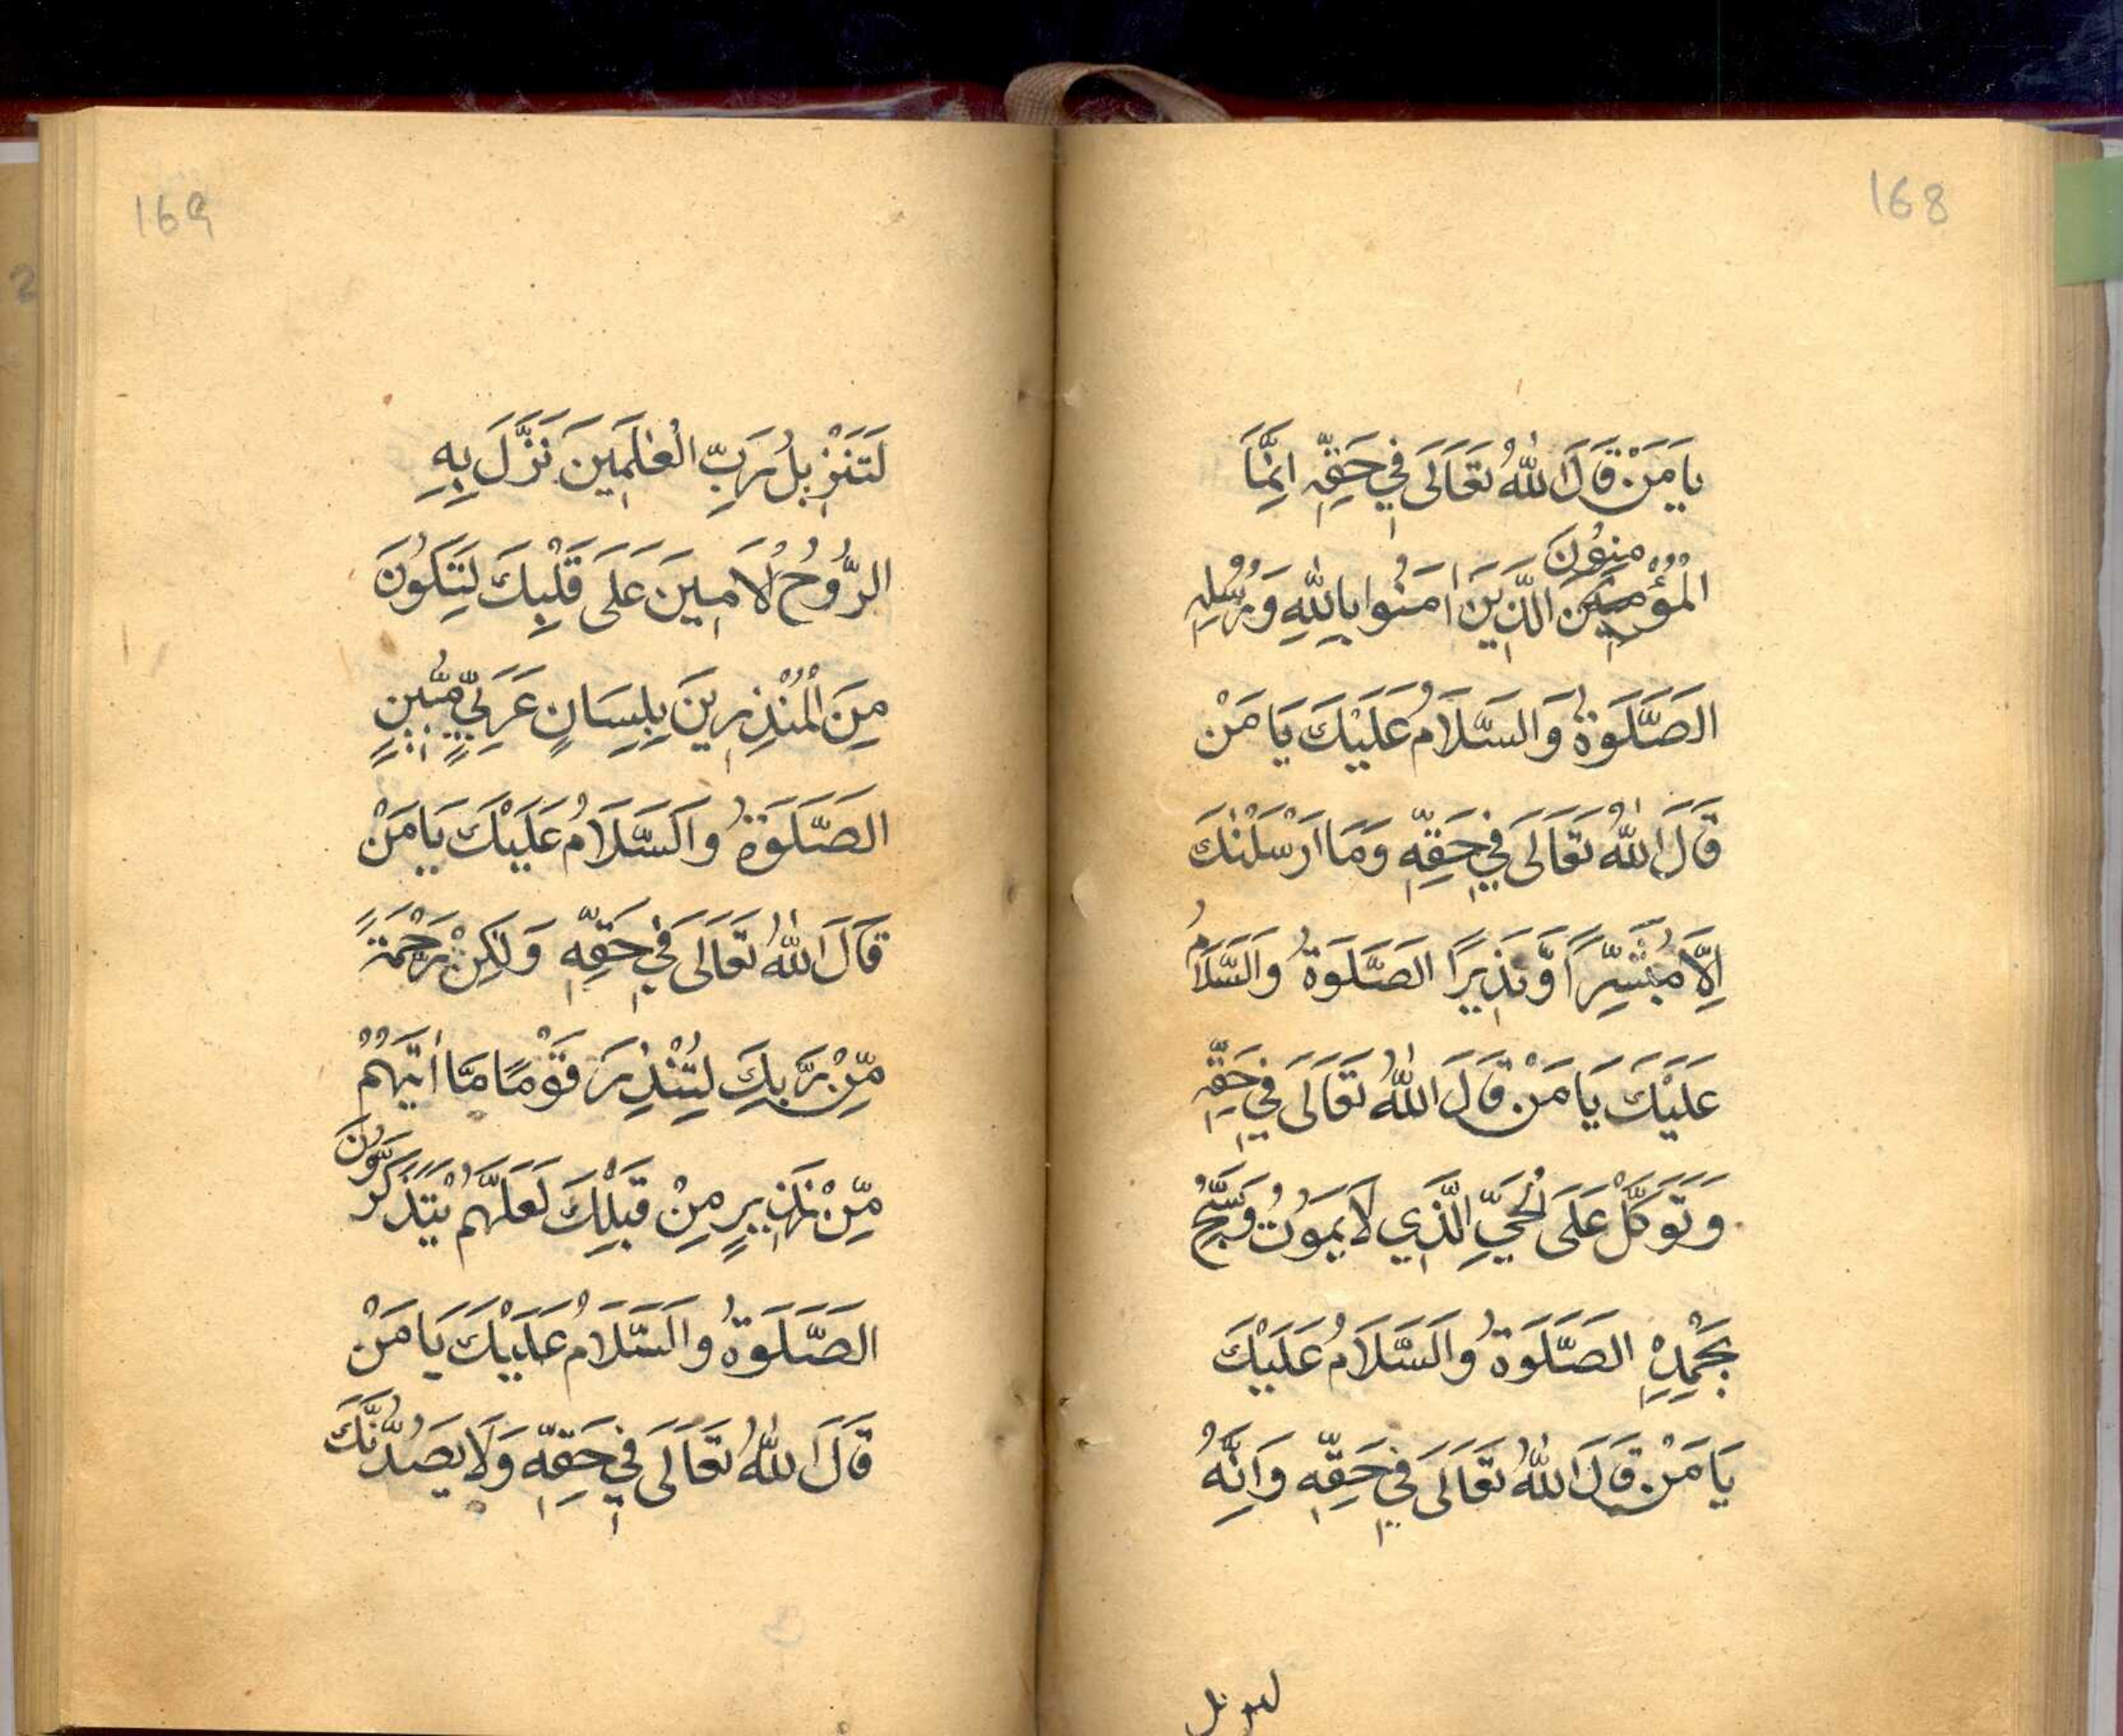 168
يَا مَنْ قَالَ اللّٰهُ تَعَالَى فِي حَقِّهِ اِنَّمَا
مِنُوْنَ
الْمُؤْمِنِيْنَ الَّذِيْنَ اٰمَنُوا بِاللّٰهِ وَرُسُلِهِ
الصَّلَوٰةُ وَالسَّلَامُ عَلَيْكَ يَا مَنْ
قَالَ اللّٰهُ تَعَالَى فِي حَقِّهِ وَمَا اَرْسَلْنٰكَ
اِلَّا مُبَشِّرًا وَّنَذِيرًا الصَّلَوةُ وَالسَّلَامُ
عَلَيْكَ يَا مَنْ قَالَ اللّٰهُ تَعَالَى فِي حَقِّهِ
وَتَوَكَّلْ عَلَى الْحَيِّ الَّذِي لَا يَمُوْتُ وَسَبِّحْ
بِحَمْدِهِ الصَّلَوةُ وَالسَّلَامُ عَلَيْكَ
يَا مَنْ قَالَ اللّٰهُ تَعَالَى فِي حَقِّهِ وَاِنَّهُ
169
لَتَنْزِيلُ رَبِّ الْعٰلَمِيْنَ نَزَّلَ بِهِ
الرُّوْحُ الْاَمِيْنَ عَلَى قَلْبِكَ لِتَكُوْنَ
مِنَ الْمُنْذِرِيْنَ بِلِسَانٍ عَرَبِيٍّ مُّبِيْنٍ
الصَّلَوةُ وَالسَّلَامُ عَلَيْكَ يَا مَنْ
قَالَ اللّٰهُ تَعَالَى فِي حَقِّهِ وَلٰكِنْ رَحْمَةً
مِّنْ رَّبِكَ لِتُنْذِرَ قَوْمًا مَّا اَتٰهُمْ
مِّنْ نَذِيْرٍ مِنْ قَبْلِكَ لَعَلَّهُمْ يَتَذَكَّرُوْنَ
الصَّلَوةُ وَالسَّلَامُ عَلَيْكَ يَا مَنْ
قَالَ اللّٰهُ تَعَالَى فِي حَقِّهِ وَلَا يَصُدُّنَّكَ